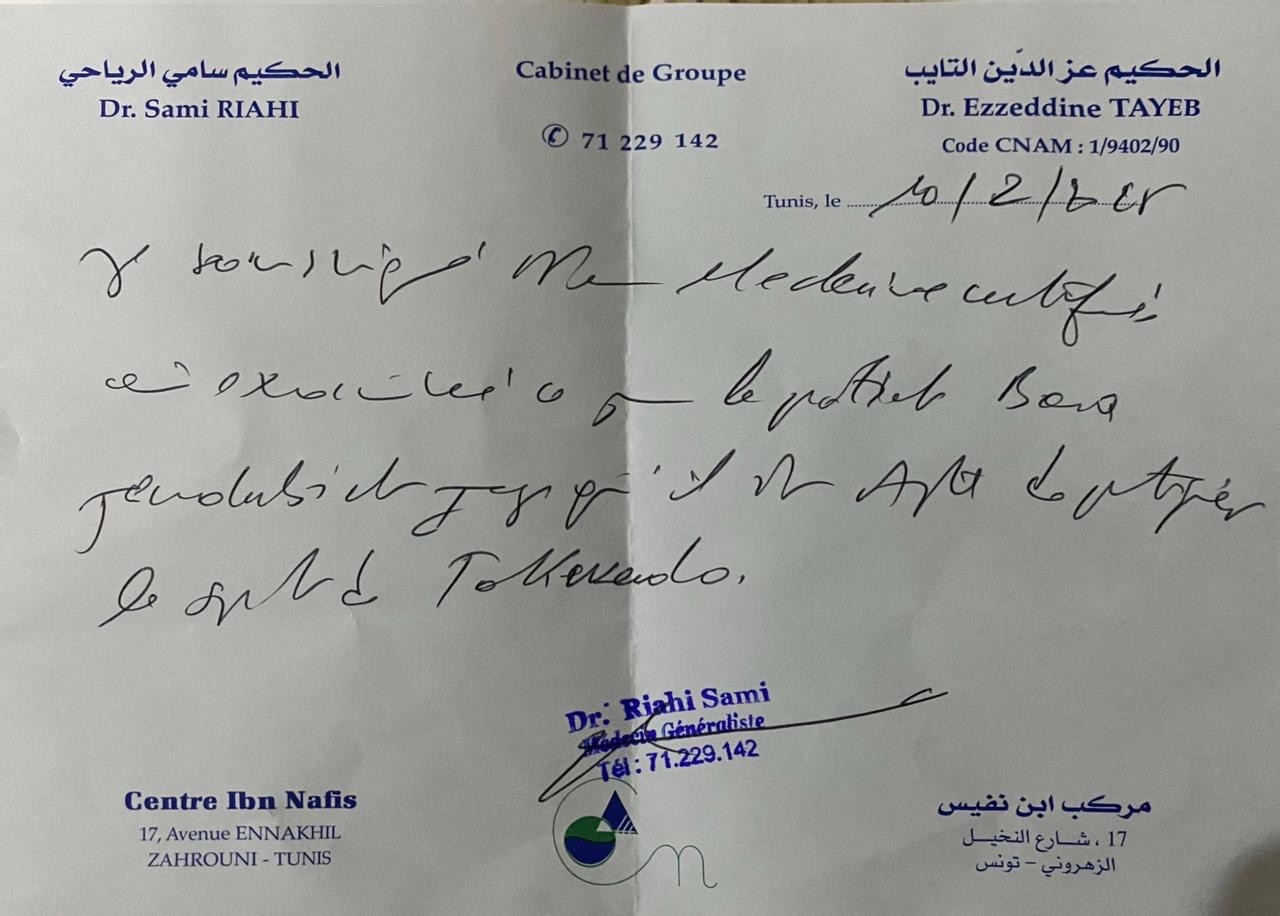 الحكيم سامي الرياحي
Dr. Sami RIAHI
Cabinet de Groupe
✆ 71 229 142
الحكيم عز الدّين التايب
Dr. Ezzeddine TAYEB
Code CNAM : 1/9402/90
Tunis, le 10/2/2025
Je soussigné Medecine certifie
examiné ce jour le patient Bara
et juge qu'il est Apte de pratiquer
le sport de Taekwendo.
Dr. Riahi Sami
Médecin Généraliste
Tél : 71.229.142
Centre Ibn Nafis
17, Avenue ENNAKHIL
ZAHROUNI - TUNIS
مركب ابن نفيس
17 ، شارع النخيل
الزهروني – تونس